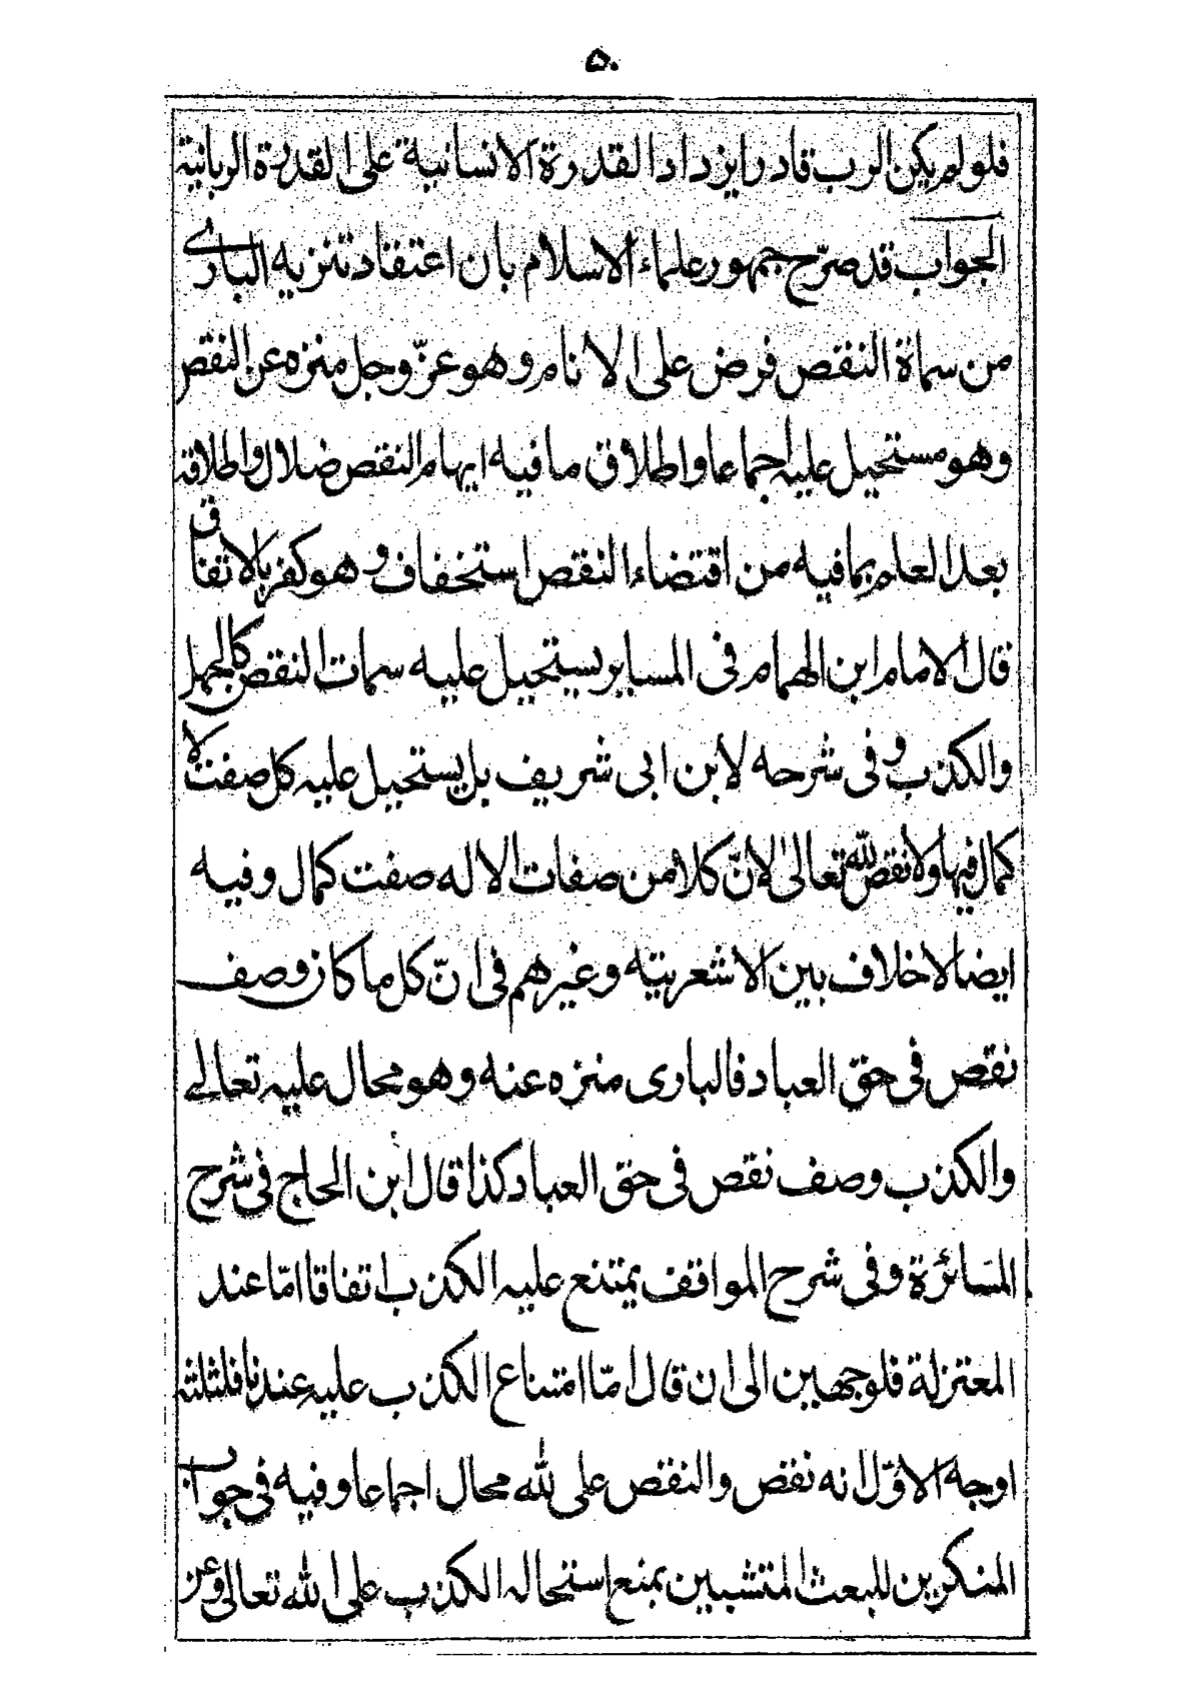 ۵۰
فلولم يكن الرب قادرا يزداد القدرة الانسانية على القدرة الربانية
الجواب قد صرّح جمهور علماء الاسلام بان اعتقاد تنزيه البارى
من سماة النقص فرض على الانام وهو عزّ وجل منزه عن النقص
وهو مستحيل عليه اجماعا واطلاق ما فيه ايهام النقص ضلال واطلاقه
بعد العلم بما فيه من اقتضاء النقص استخفاف وهو كفر بالاتفاق
قال الامام ابن الهمام فى المساير يستحيل عليه سمات النقص كالجهل
والكذب وفى شرحه لابن ابى شريف بل يستحيل عليه كل صفت لا
كمال فيها ولا نقص لله تعالى لانّ كلا من صفات الاله صفت كمال وفيه
ايضا لا خلاف بين الاشعريته وغيرهم فى انّ كل ما كان وصف
نقص فى حق العباد فالبارى منزه عنه وهو محال عليه تعالے
والكذب وصف نقص فى حق العباد كذا قال ابن الحاج فى شرح
المسَائرة وفى شرح المواقف يمتنع عليه الكذب اتفاقا امّا عند
المعتزلة فلوجهين الى ان قال امّا امتناع الكذب عليه عندنا فلثلثه
اوجه الاوّل انه نقص والنقص على لله محال اجماعا وفيه فى جواب
المنكرين للبعث المتشبين بمنع استحاله الكذب على الله تعالى وعن